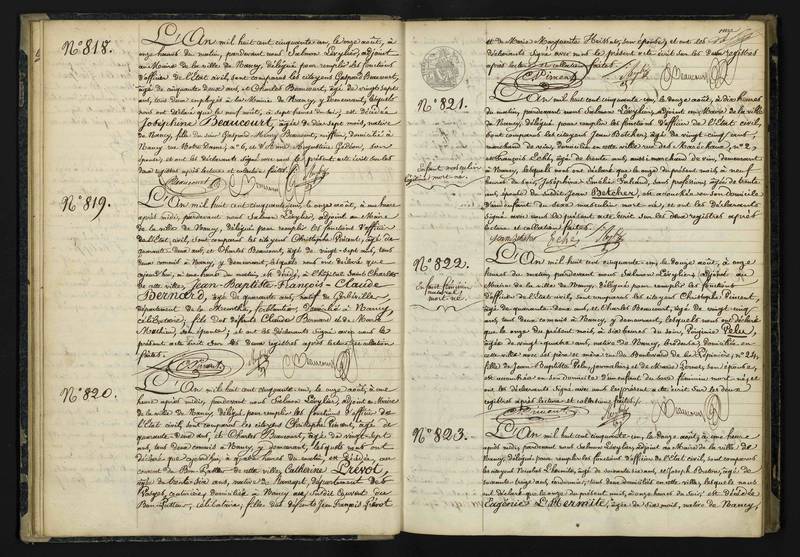 N° 818.
L'An mil huit cent cinquante cinq, le onze août, à
onze heures du matin, pardevant nous Salmon Lévylier, adjoint
au Maire de la ville de Nancy, délégué pour remplir les fonctions
d'officier de l'État civil, sont comparus les citoyens Gaspard Beaucourt,
âgé de cinquante deux ans, et Charles Beaucourt, âgé de vingt-sept
ans, tous deux employés à la Mairie de Nancy, y demeurant, lesquels
nous ont déclaré que à sept heures du est décédée
Joséphine Beaucourt, âgée de dix sept mois, native
de Nancy, fille du sieur Gaspard Beaucourt, domicilié à
Nancy rue Notre Dame, n° 6, et d'Anne Augustine son
épouse; et ont les déclarants signé avec nous le présent acte écrit sur les
deux registres après lecture et collation faites.
Beaucourt
N° 819.
L'An mil huit cent cinquante cinq, le onze août, à une heure
après midi, pardevant nous Salmon Lévylier, adjoint au Maire
de la ville de Nancy, délégué pour remplir les fonctions d'officier
de l'État civil, sont comparus les citoyens Christophe Piment, âgé de
quarante deux ans, et Charles Beaucourt, âgé de vingt-sept ans, tous
deux commis à Nancy, y demeurant, lesquels nous ont déclaré que
aujourd'hui, à une heure du matin, est décédé, à l'hôpital Saint Charles
de cette ville, Jean-Baptiste-François-Claude
Bernard, âgé de quarante ans, natif de
département de la Meurthe, ferblantier, domicilié à Nancy,
célibataire, fils des défunts Claude Bernard et de Marie
son épouse; et ont les déclarants signé avec nous le
présent acte écrit sur les deux registres après lecture et collation
faites.
C. Piment Beaucourt
N° 820.
L'An mil huit cent cinquante cinq, le onze août, à une
heure après midi, pardevant nous Salmon Lévylier, adjoint au Maire
de la ville de Nancy, délégué pour remplir les fonctions d'officier de
l'État civil, sont comparus les citoyens Christophe Piment, âgé de
quarante-deux ans, et Charles Beaucourt, âgé de vingt-sept
ans, tous deux commis à Nancy, y demeurant, lesquels nous ont
déclaré que aujourd'hui à quatre heures du matin, est décédée, au
couvent du Bon Pasteur de cette ville, Catherine Prévot,
âgée de trente-six ans, native de département des
Vosges, couturière, domiciliée à Nancy au susdit couvent du
Bon-Pasteur, célibataire, fille des défunts Jean François Prévot
et de Marie Marguerite son épouse; et ont les
déclarants signé avec nous le présent acte écrit sur les deux registres
après lecture et collation faites.
C. Piment Beaucourt
N° 821.
Enfant masculin
Légitime mort-né.
L'An mil huit cent cinquante cinq, le douze août, à dix heures
du matin, pardevant nous Salmon Lévylier, adjoint au Maire de la ville
de Nancy, délégué pour remplir les fonctions d'officier de l'État civil,
sont comparus les citoyens Jean Betcher, âgé de vingt cinq ans,
marchand de vin, domicilié en cette ville rue des Maréchaux, n° 2,
et François âgé de trente ans, aussi marchand de vin, demeurant
à Nancy, lesquels nous ont déclaré que le onze du présent mois, à neuf
heures du soir, Joséphine Emélie sans profession, âgée de trente
ans, épouse du susdit Jean Betcher, est accouchée en son domicile
d'un enfant du sexe masculin mort-né, et ont les déclarants
signé avec nous le présent acte écrit sur les deux registres après
lecture et collation faites.
N° 822.
Enfant féminin
naturel
mort-né.
L'An mil huit cent cinquante cinq, le douze août, à onze
heures du matin, pardevant nous Salmon Lévylier, adjoint au
Maire de la ville de Nancy, délégué pour remplir les fonctions
d'officier de l'État civil, sont comparus les citoyens Christophe Piment,
âgé de quarante-deux ans, et Charles Beaucourt, âgé de vingt-cinq
ans, tous deux commis à Nancy, y demeurant, lesquels nous ont déclaré
que le onze du présent mois à six heures du soir, Virginie Pelu,
âgée de vingt-quatre ans, native de Nancy, brodeuse, domiciliée en
cette ville avec ses père et mère rue du Boulevard de la Pépinière, n° 24,
fille de Jean-Baptiste Pelu, journalier, et de Marie son épouse,
est accouchée en son domicile d'un enfant du sexe féminin mort-né; et
ont les déclarants signé avec nous le présent acte écrit sur les deux
registres après lecture et collation faites.
C. Piment Beaucourt
N° 823.
L'An mil huit cent cinquante cinq, le douze août, à une heure
après midi, pardevant nous Salmon Lévylier, adjoint au Maire de la ville de
Nancy, délégué pour remplir les fonctions d'officier de l'État civil, sont comparus
les citoyens Nicolas Lhermite, âgé de soixante six ans, et Joseph âgé de
soixante-treize ans, tous deux domiciliés en cette ville, lesquels nous
ont déclaré que le onze du présent mois, à onze heures du soir, est décédée
Eugénie Lhermite, âgée de six mois, native de Nancy,